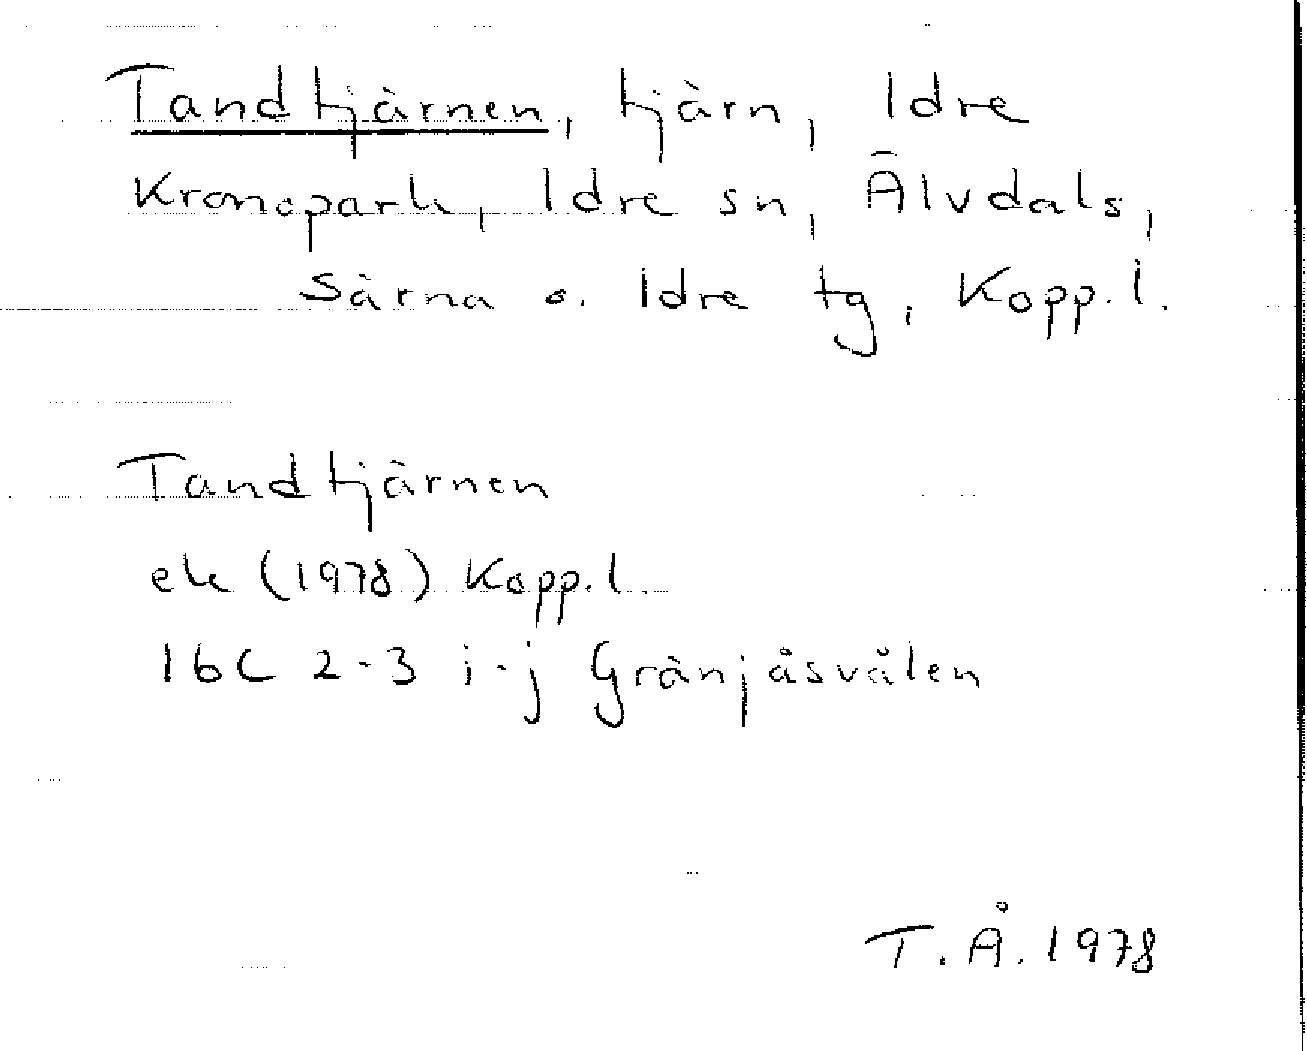 Tandtjärnen, tjärn, Idre
Kronopark, Idre sn, Älvdals,
Särna o. Idre tg, Kopp. l.
Tandtjärnen
ek (1978) Kopp. l.
16C 2-3 i-j Gränjåsvålen
T. Å. 1978